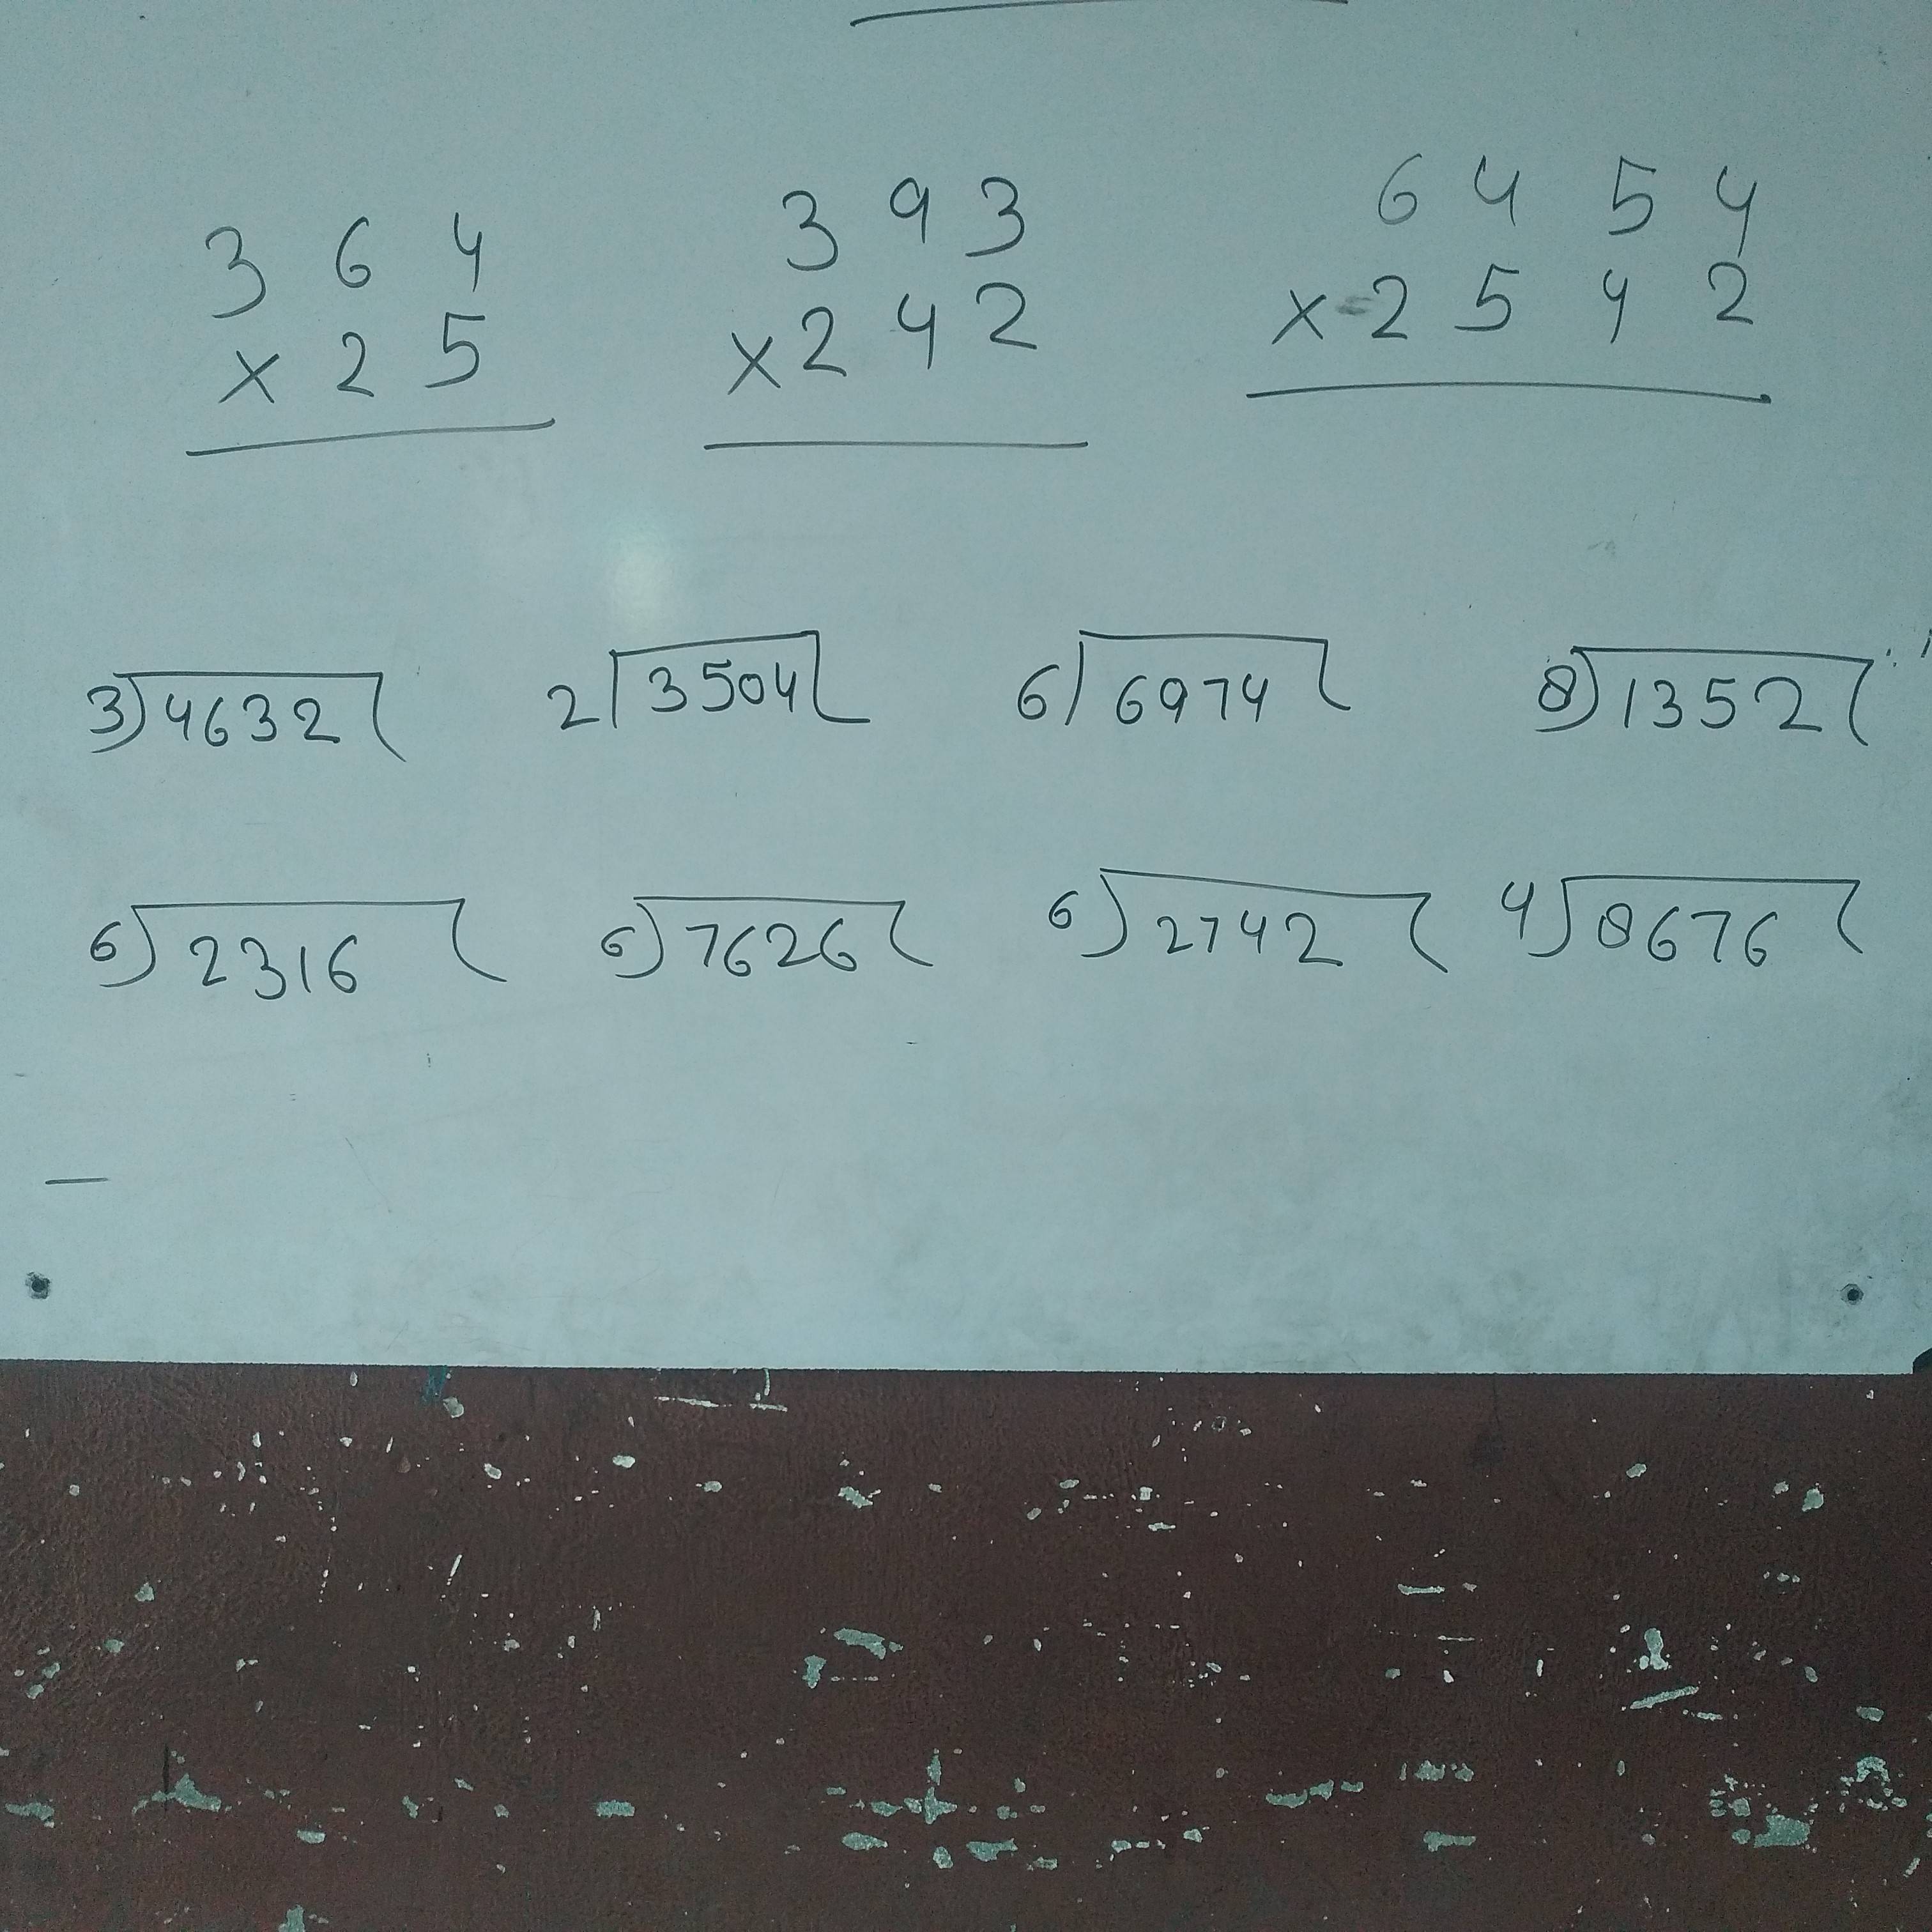 364 393 6454
×25 ×242 ×2542
3)4632( 2)3504( 6)6974( 8)1352(
6)2316( 6)7626( 6)2742( 4)8676(